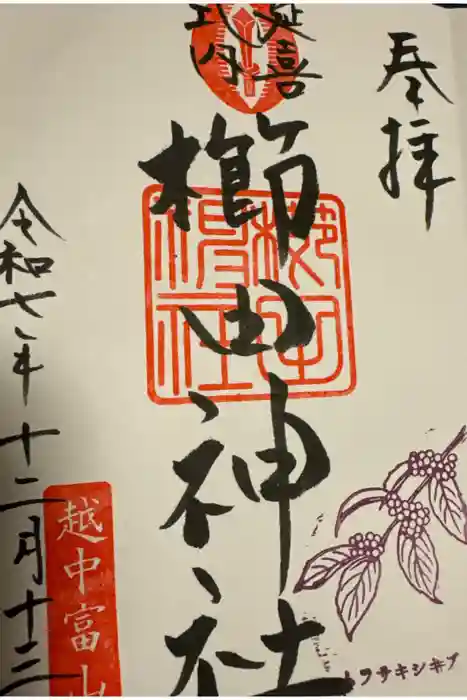 奉拝
延喜
式内
櫛田神社
櫛田
神社
令和七年十二月十三
越中富山
ムラサキシキブ